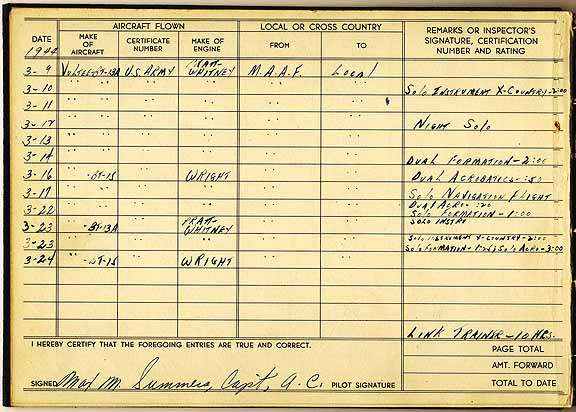 AIRCRAFT FLOWN LOCAL OR CROSS COUNTRY REMARKS OR INSPECTOR'S SIGNATURE, CERTIFICATION NUMBER AND RATING
DATE MAKE OF AIRCRAFT CERTIFICATE NUMBER MAKE OF ENGINE FROM TO
1944
3-9 VULTEE-BT-13A U.S. ARMY PRATT-WHITNEY M.A.A.F. LOCAL
3-10 " " " " " " " " " " SOLO INSTRUMENT X-COUNTRY-2:00
3-11 " " " " " " " " " "
3-12 " " " " " " " " " " NIGHT SOLO
3-13 " " " " " " " " " "
3-14 " " " " " " " " " " DUAL FORMATION-2:00
3-16 -BT-15 " " WRIGHT " " " " DUAL ACROBATICS-:50
3-17 " " " " " " " " " " SOLO NAVIGATION FLIGHT
3-22 " " " " " " " " " " DUAL ACRO-:20
SOLO FORMATION-1:00
3-23 -BT-13A " " PRATT-WHITNEY " " " " SOLO INSTRU
3-23 " " " " " " " " " " SOLO INSTRUMENT X-COUNTRY-2:00
SOLO FORMATION-1:25; SOLO ACRO-3:00
3-24 -BT-15 " " WRIGHT " " " "
LINK TRAINER-10 HRS.
I HEREBY CERTIFY THAT THE FOREGOING ENTRIES ARE TRUE AND CORRECT.
PAGE TOTAL
AMT. FORWARD
SIGNED Max M. Summers, Capt, A.C. PILOT SIGNATURE
TOTAL TO DATE